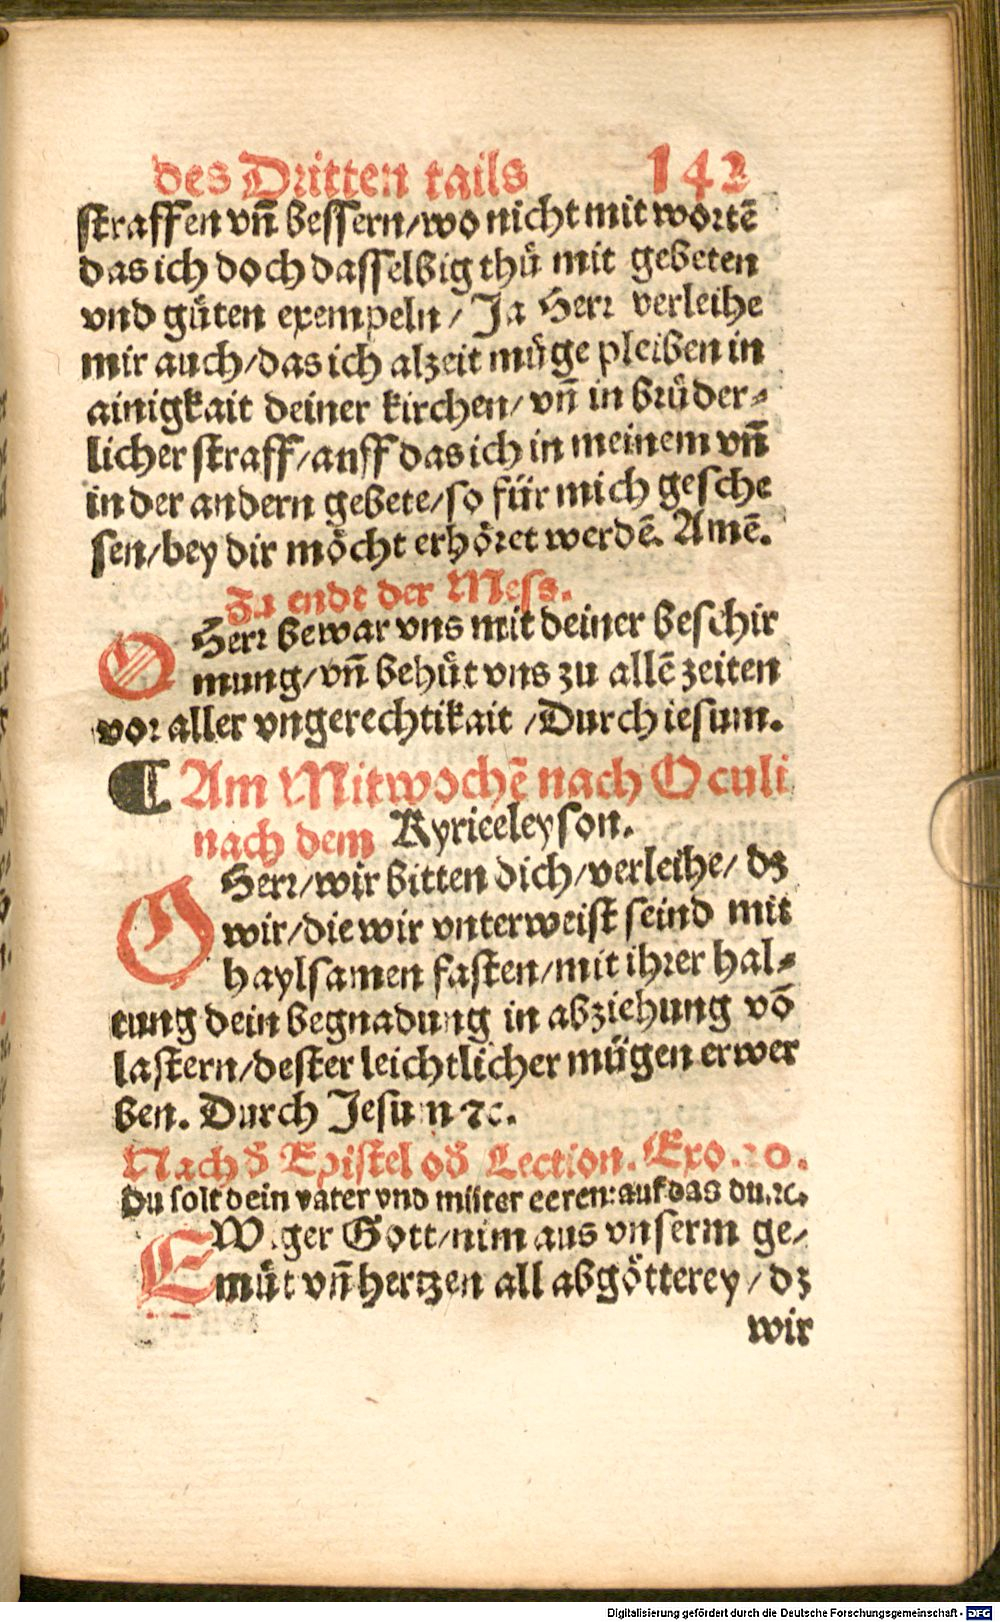 des Dritten tails 142
straffen vñ bessern/wo nicht mit wortē
das ich doch dasselbig thů mit gebeten
vnd gůten exempeln/ Ja Herr verleihe
mir auch/das ich alzeit müge pleiben in
ainigkait deiner kirchen/ vñ in brüder⸗
licher straff/auff das ich in meinem vñ
in der andern gebete/so für mich gesche
sen/bey dir möcht erhöret werdē. Amē.
Zu endt der Mess.
O Herr bewar vns mit deiner beschir
mung/vñ behüt vns zu allē zeiten
vor aller vngerechtikait /Durch iesum.
¶ Am Mitwochē nach Oculi
nach dem Kyrieeleyson.
O Herr/wir bitten dich/verleihe/ dz
wir/die wir vnterweist seind mit
haylsamen fasten/mit ihrer hal⸗
tung dein begnadung in abziehung vō
lastern/dester leichtlicher mügen erwer
ben. Durch Jesum ꝛc.
Nach d̄ Epistel od̄ Lection. Exo. 20.
Du solt dein vater vnd můter eeren: auf das du. ꝛc.
EWiger Gott/nim aus vnserm ge/
müt vñ hertzen all abgötterey/ dz
wir
Digitalisierung gefördert durch die Deutsche Forschungsgemeinschaft - DFG